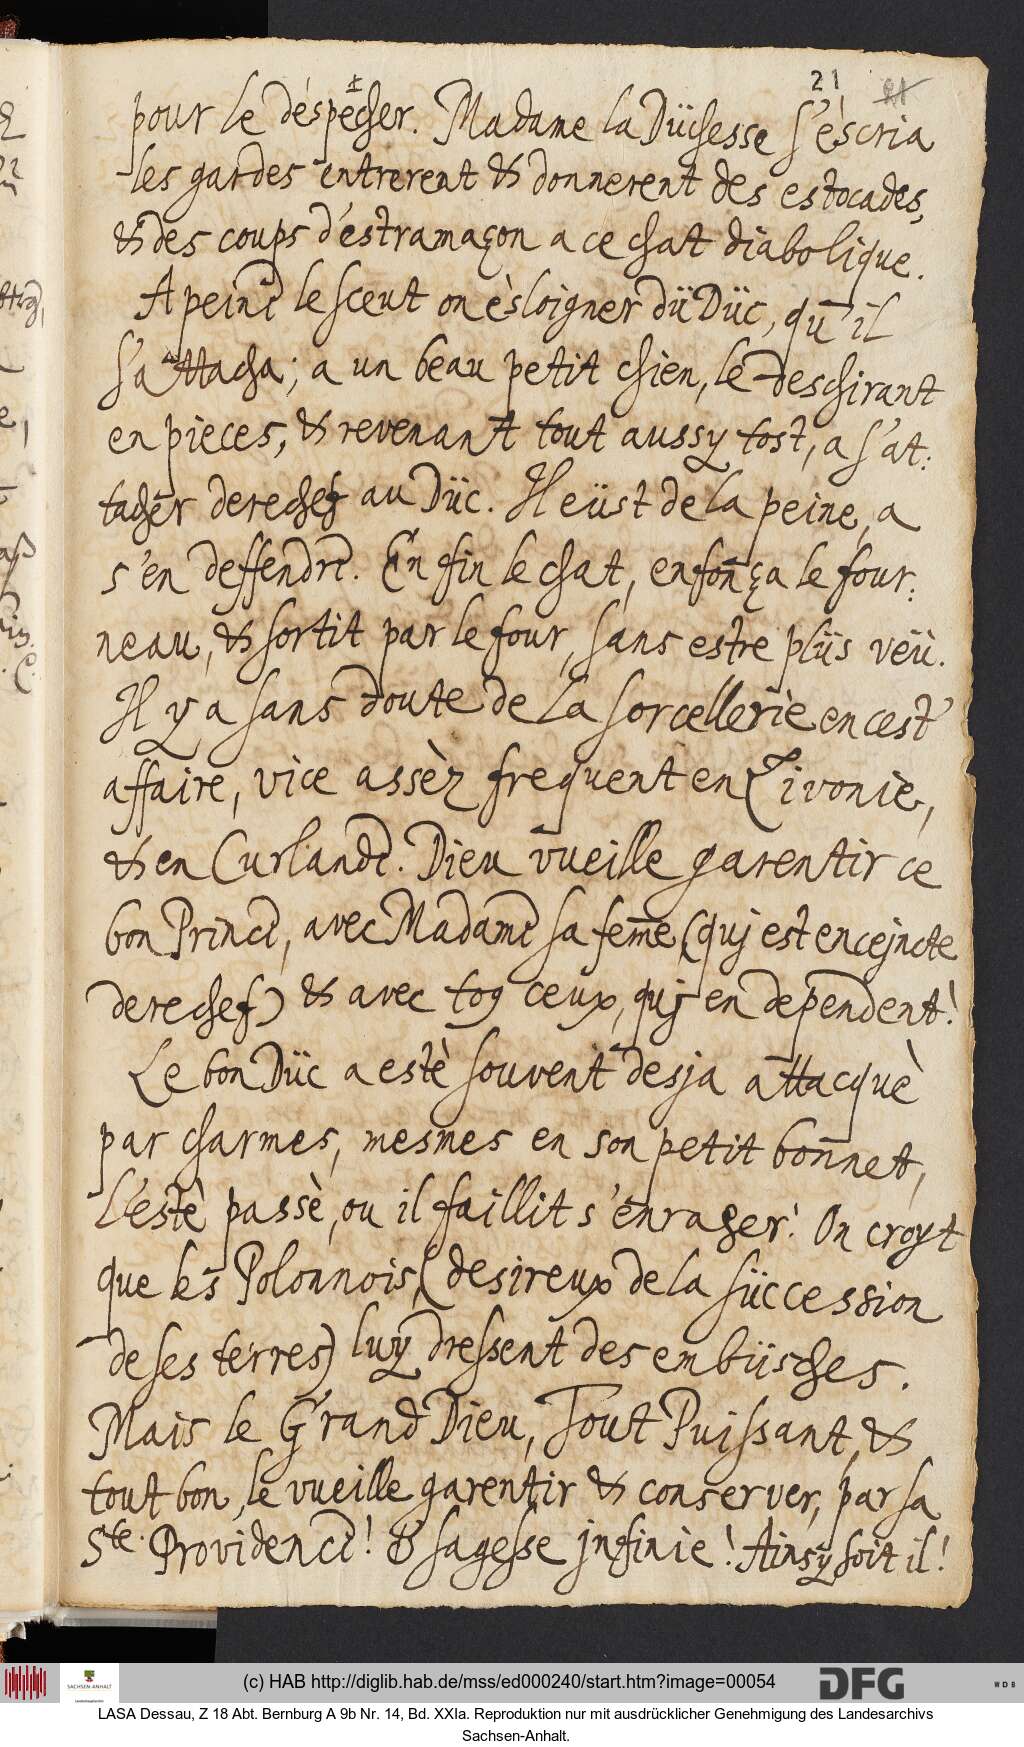 21
pour le despescher. Madame la Düchesse s'èscria
les gardes entrerent & donnerent des estocades,
& des coups d'éstramaçon a ce chat diabolique.
A peine le sceut on èsloigner dü Düc, qu'il
s'attacha; a un beau petit chien, le deschirant
en pieces, & revenant tout aussy tost, a s'at:
tacher derechef au Düc. Il eüst de la peine, a
s'en deffendre. En fin le chat, enfonça le four:
neau, & sortit par le four, sans estre plüs veü.
Il y a sans doute de la sorcellerie en cest'
affaire, vice assèz frequent en Livonie,
& en Curlande. Dieu vueille garentir ce
bon Prince, avec Madame sa fem̅e (quj est encejncte
derechef) & avec to9 ceux, quj en dependent!
Le bon Düc a estè souvent desja attacquè
par charmes, mesmes en son petit bonnet,
l'estè passè, ou il faillit s'enrager! On croyt
que les Polonnois, (desireux de la süccession
de ses terres) luy dressent des embüsches.
Mais le Grand Dieu, Tout Puissant, &
tout bon, le vueille garentir & conserver, par sa
Ste. Providence! & sagesse jnfinie! Ainsy soit il!
(c) HAB http://diglib.hab.de/mss/ed000240/start.htm?image=00054
SACHSEN-ANHALT
DFG
WDB
LASA Dessau, Z 18 Abt. Bernburg A 9b Nr. 14, Bd. XXIa. Reproduktion nur mit ausdrücklicher Genehmigung des Landesarchivs
Sachsen-Anhalt.